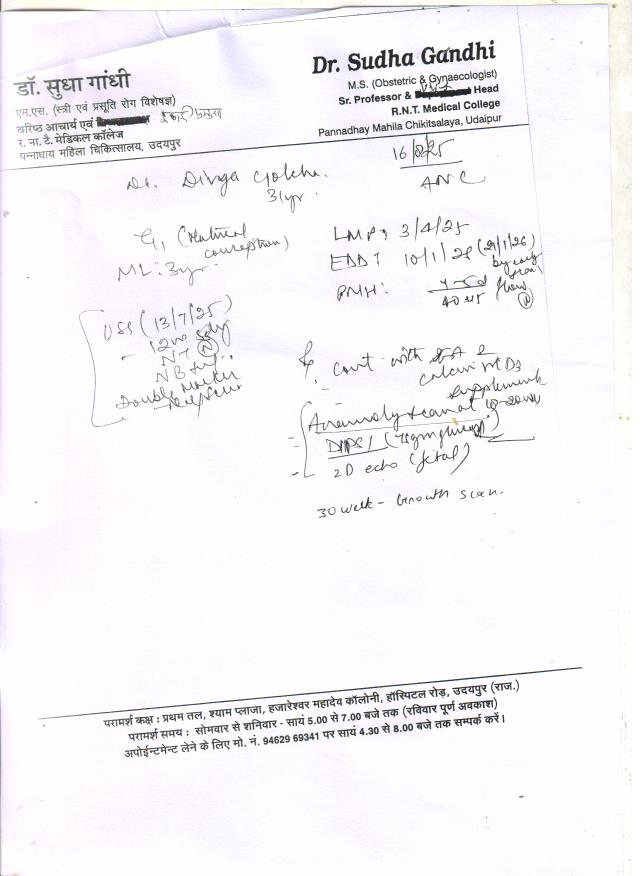 डॉ. सुधा गांधी
एम.एस. (स्त्री एवं प्रसूति रोग विशेषज्ञ)
वरिष्ठ आचार्य एवं
र. ना. टै. मेडिकल कॉलेज
पन्नाधाय महिला चिकित्सालय, उदयपुर
Dr. Sudha Gandhi
M.S. (Obstetric & Gynaecologist)
Sr. Professor & Head
R.N.T. Medical College
Pannadhay Mahila Chikitsalaya, Udaipur
16/8/25
ANC
Dr. Divya
31yr.
G1 (Natural
conception)
ML: 3yr
LMP: 3/4/25
EDD: 10/1/26 (21/1/26)
by early
scan
PMH: 4-5d
flow
(N)
USG (13/7/25)
NT (N)
NB
Double Marker
Cont with
calcium D3
supplement
- Anomaly scan at
- DIPSI
- 2D echo (fetal)
30 week - Growth scan.
परामर्श कक्ष : प्रथम तल, श्याम प्लाजा, हजारेश्वर महादेव कॉलोनी, हॉस्पिटल रोड़, उदयपुर (राज.)
परामर्श समय : सोमवार से शनिवार - सायं 5.00 से 7.00 बजे तक (रविवार पूर्ण अवकाश)
अपोईन्टमेन्ट लेने के लिए मो. नं. 94629 69341 पर सायं 4.30 से 8.00 बजे तक सम्पर्क करें।